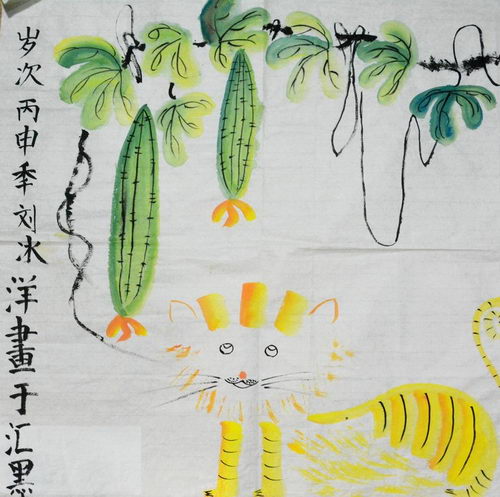 岁次丙申季刘冰洋畫于汇墨